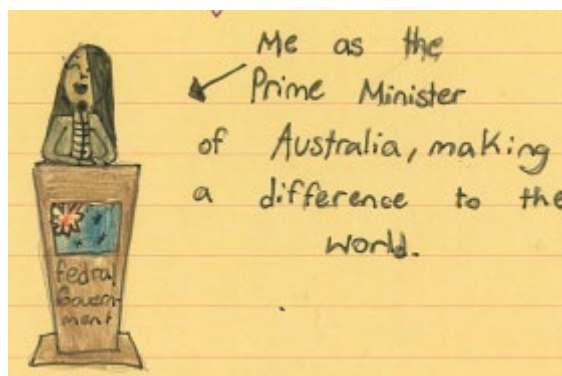 Me as the
Prime Minister
of Australia, making
a difference to the
world.
fedral
Govern-
ment